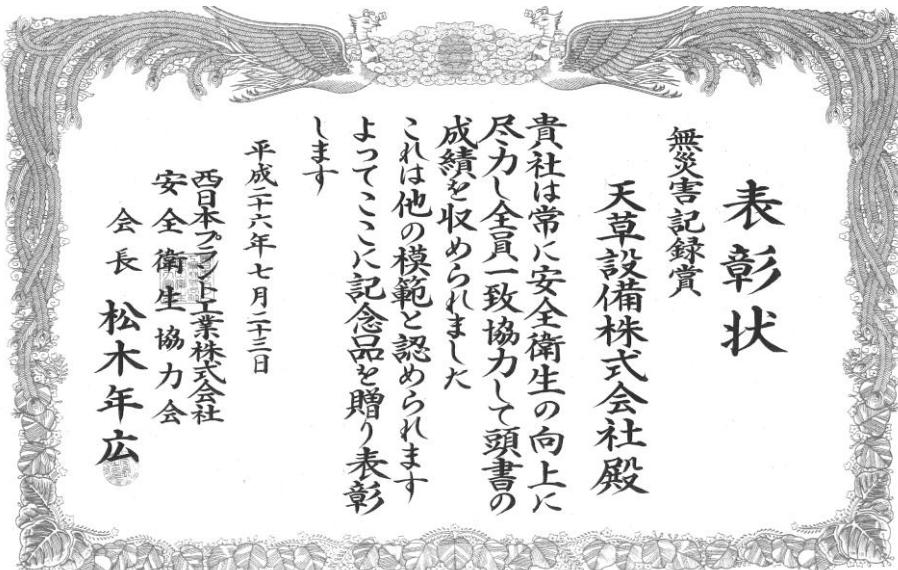 表彰状
無災害記録賞
天草設備株式会社殿
貴社は常に安全衛生の向上に
尽力し全員一致協力して頭書の
成績を収められました
これは他の模範と認められます
よってここに記念品を贈り表彰
します
平成二十六年七月二十三日
西日本プラント工業株式会社
安全衛生協力会
会長 松木年広